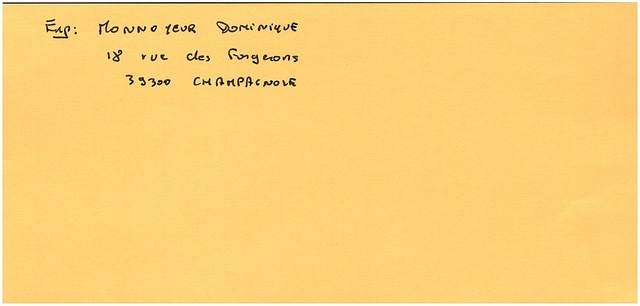 Exp: MONNOYEUR DOMINIQUE
18 rue des Forgerons
39300 CHAMPAGNOLE